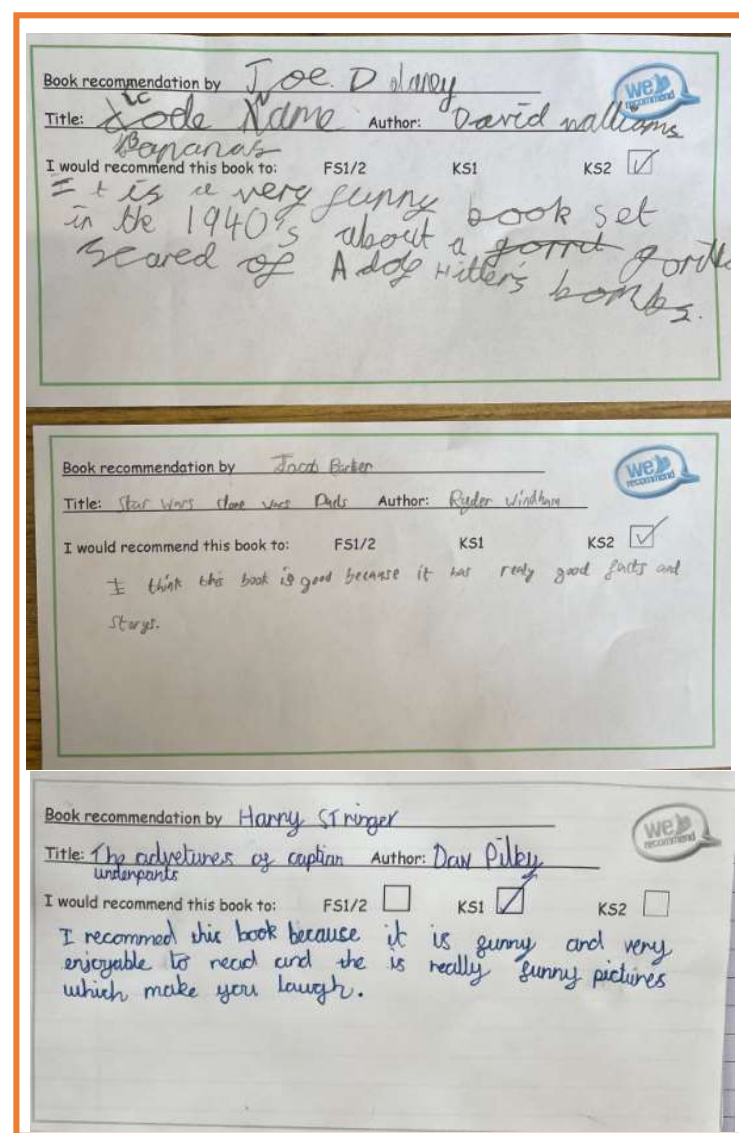 Book recommendation by Joe. D
we recommend
Title: Code Name Author: David walliams
Bananas
I would recommend this book to: FS1/2 KS1 KS2
It is a very funny book set
in the 1940's about a gorril gorilla
scared of Adolf Hitler's bombs.
Book recommendation by Jacob Barker
we recommend
Title: Star Wars clone wars Author: Ryder Windham
I would recommend this book to: FS1/2 KS1 KS2
I think this book is good because it has realy good facts and
storys.
Book recommendation by Harry STringer
we recommend
Title: The advetures of captian Author: Dav Pilky
underpants
I would recommend this book to: FS1/2 KS1 KS2
I recommed this book because it is funny and very
enjoyable to read and the is really funny pictures
which make you laugh.